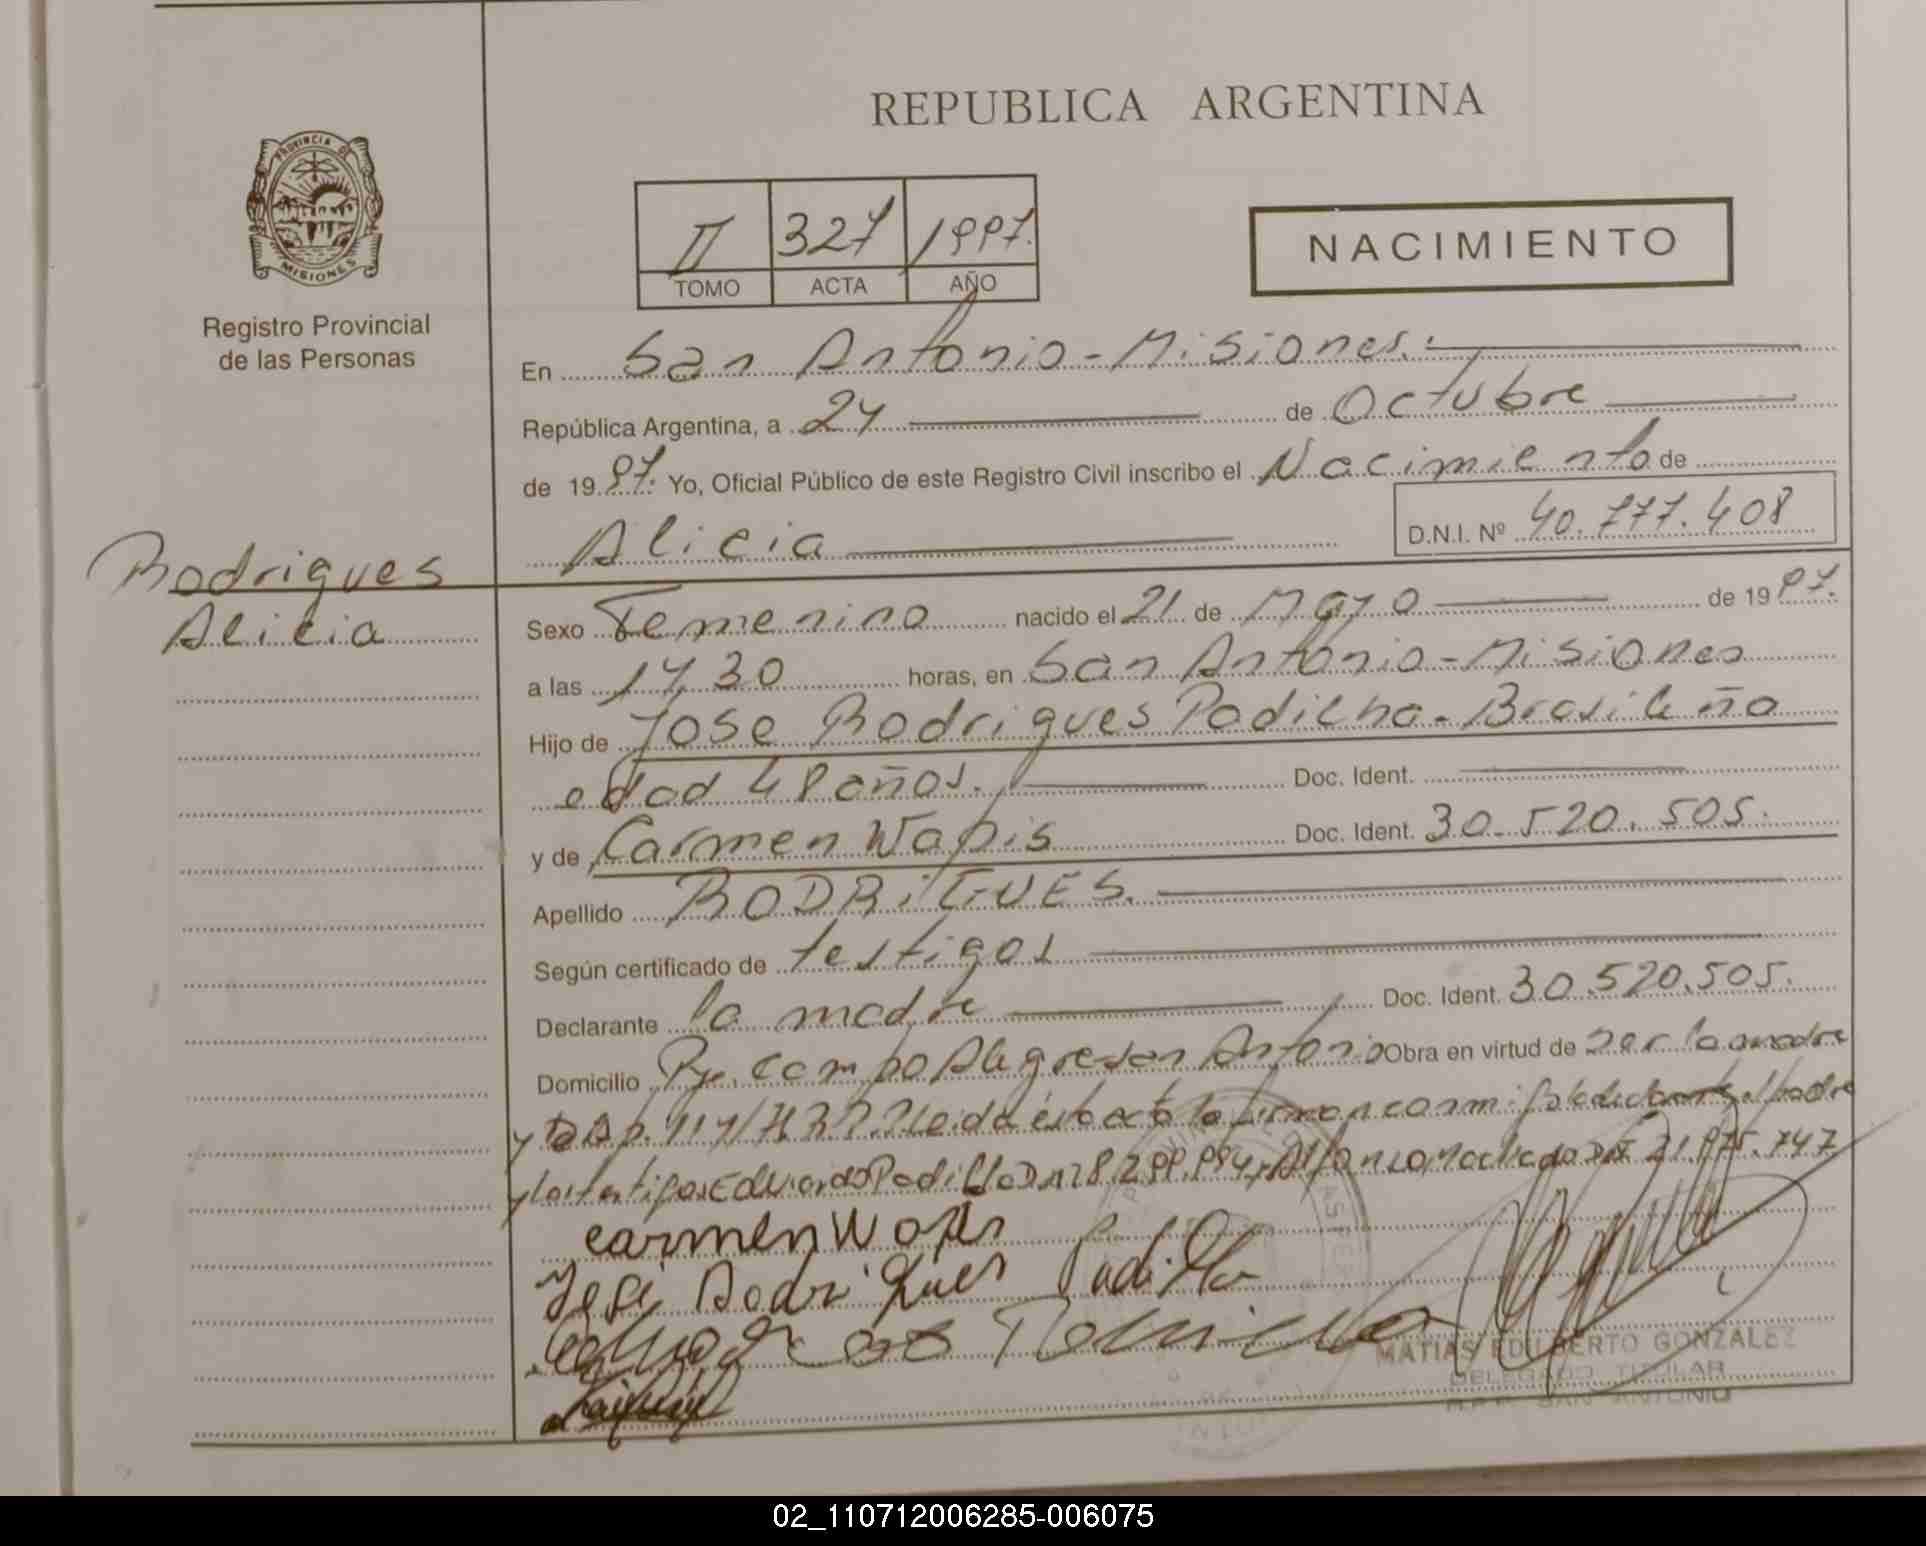 REPUBLICA ARGENTINA
PROVINCIA DE
MISIONES
Registro Provincial
de las Personas
II 327 1997.
TOMO ACTA AÑO
NACIMIENTO
En San Antonio - Misiones.
República Argentina, a 24 de Octubre
de 1997. Yo, Oficial Público de este Registro Civil inscribo el Nacimiento de
Alicia D.N.I. Nº 40.777.408
Rodrigues
Alicia
Sexo Femenino nacido el 21 de Mayo de 1997.
a las 14,30 horas, en San Antonio - Misiones
Hijo de Jose Rodrigues Padilha - Brasileño
edad 48 años. Doc. Ident.
y de Carmen Wapis Doc. Ident. 30.520.505.
Apellido RODRIGUES.
Según certificado de testigos
Declarante la madre Doc. Ident. 30.520.505.
Domicilio Pje. Campo Alegre San Antonio Obra en virtud de ser la madre
y leida esta acta la firman conmigo la declarante, el padre
y los testigos Eduardo Padilla
carmen Wapis
José Rodrigues Padilla
MATIAS EDILBERTO GONZALEZ
DELEGADO TITULAR
R.P.P. SAN ANTONIO
02_110712006285-006075